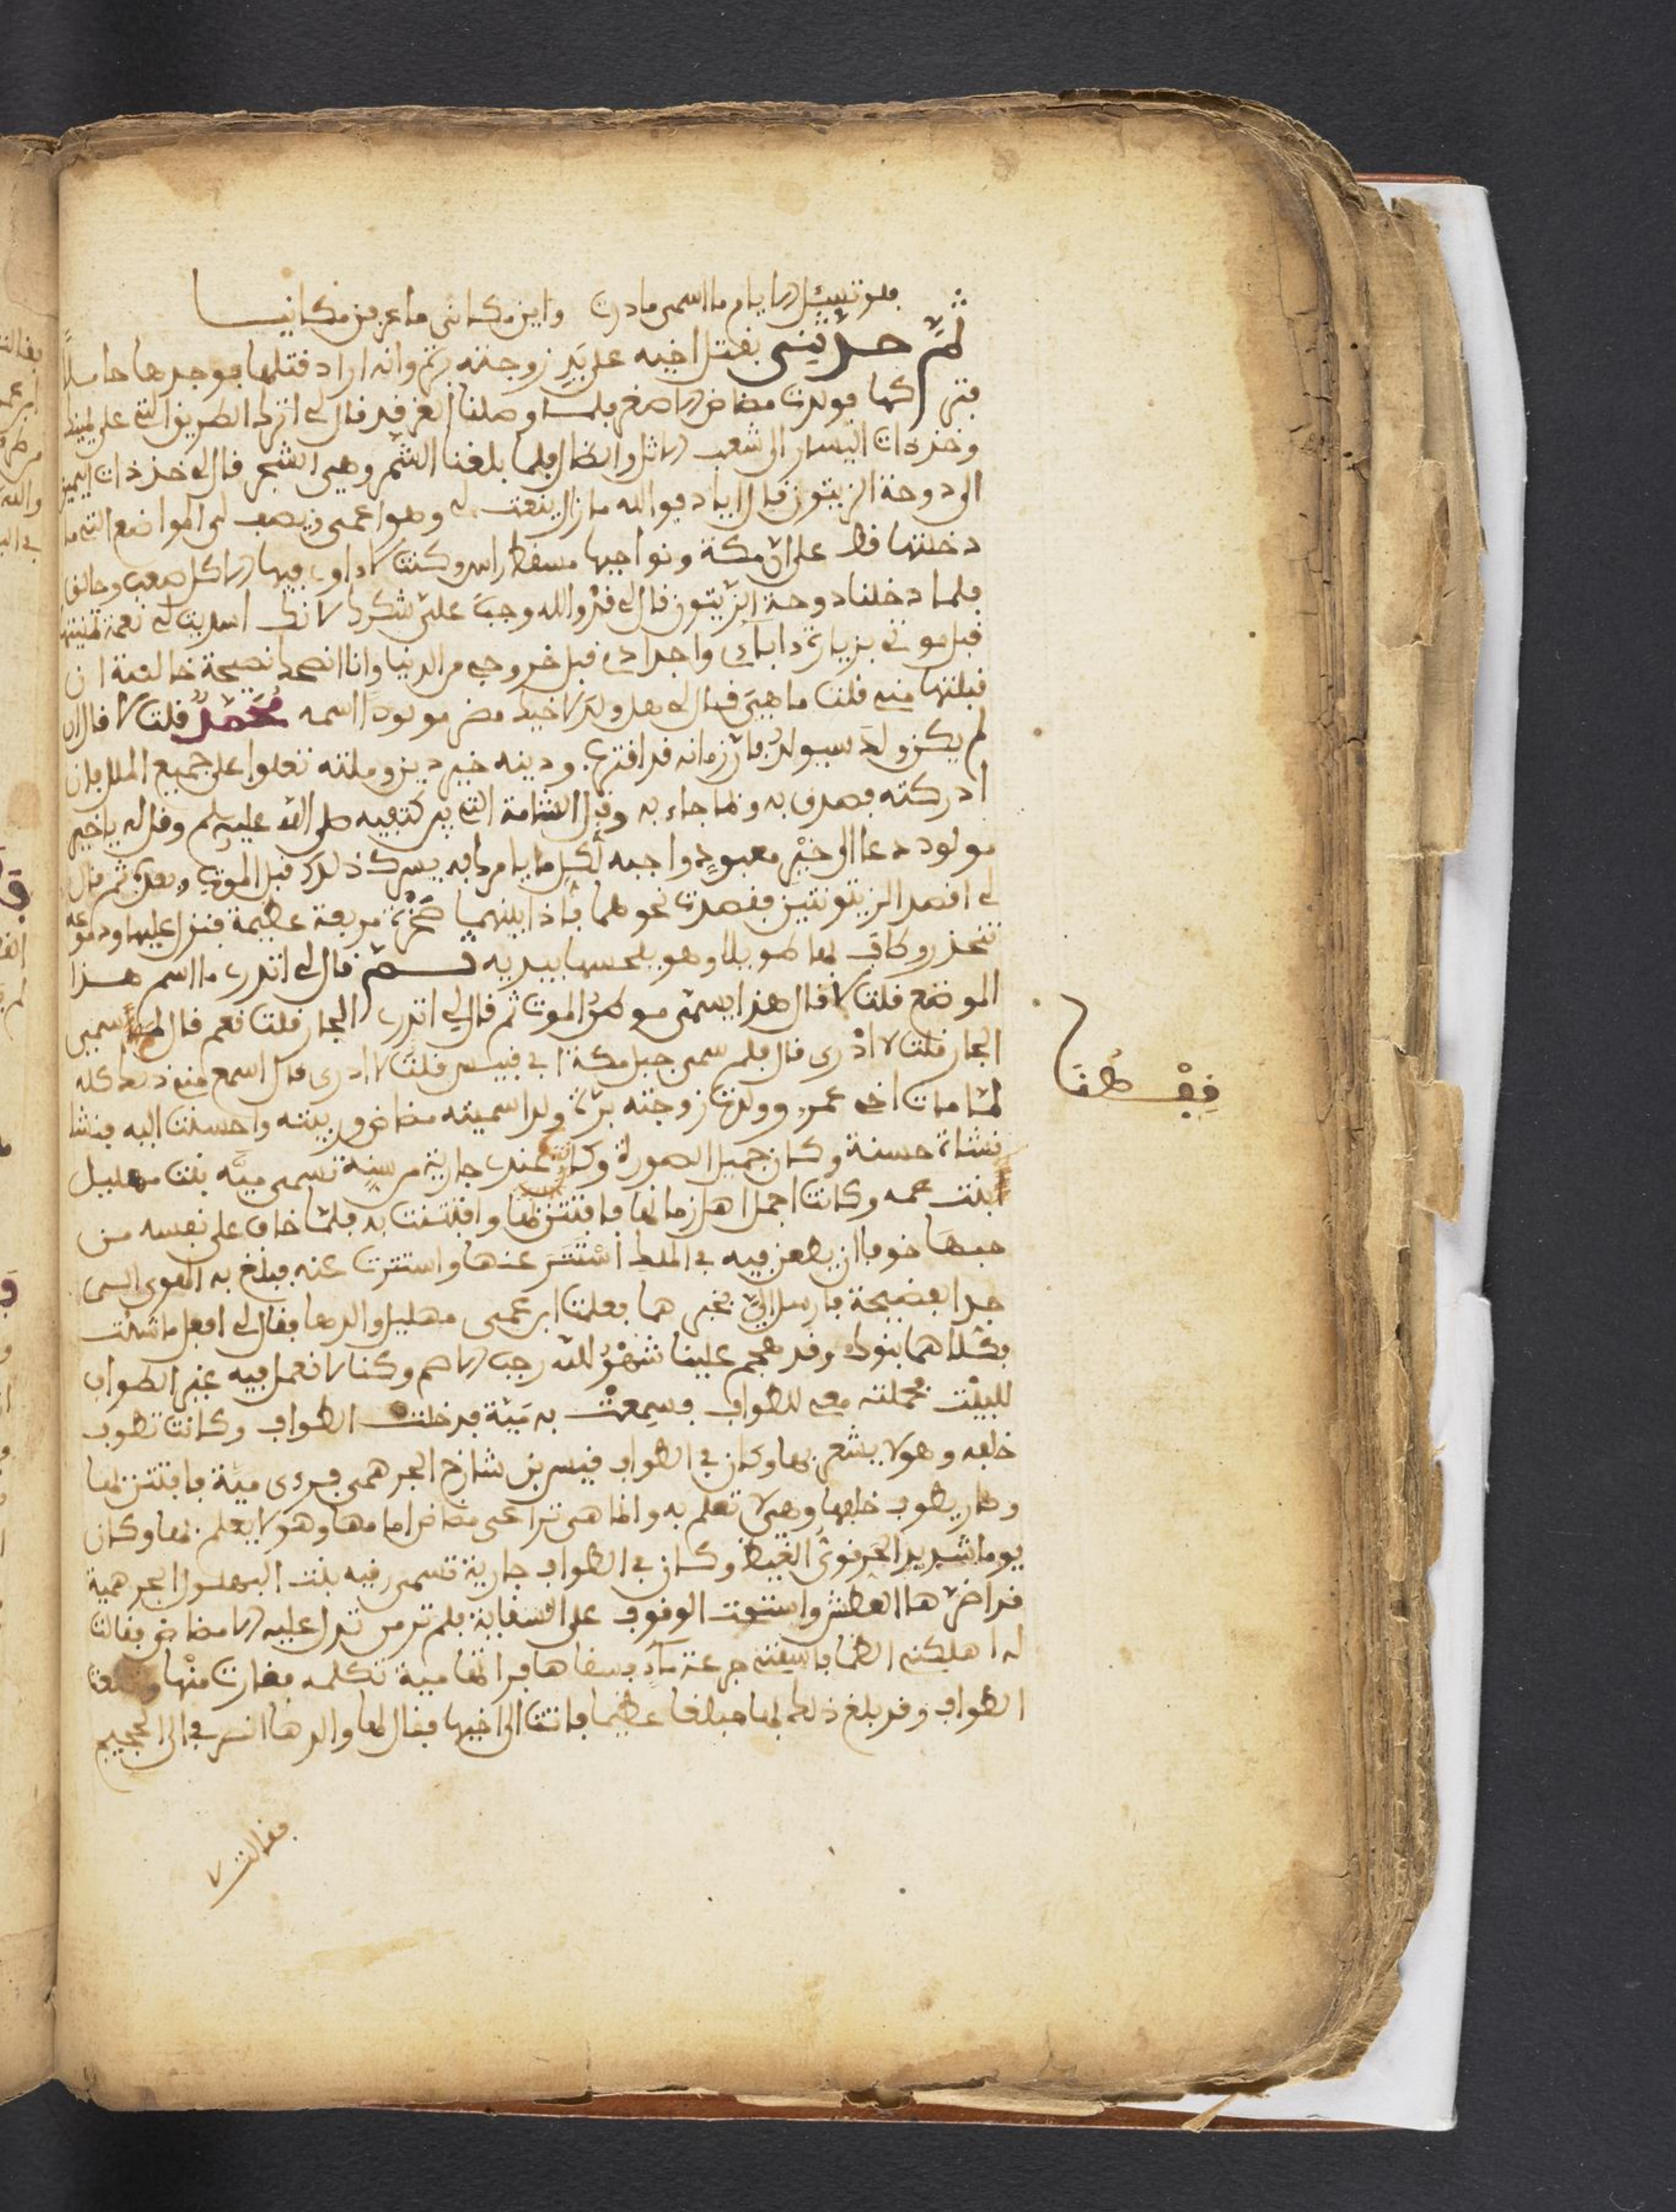 فلو تسئل الايام ما اسمى مادرت واين مكانى ما عرفن مكانيا
ثم حدثنى بقتل اخيه على يد زوجته برة وانه اراد قتلها فوجدها حاملا
فتركها فولدت مضاض الاصغر فلما وصلنا قال لى اترك الطريق التى على يمينك
وخذ ذات اليسار الى شعب الاثل والضال فلما بلغنا الشجر قال لى خذ ذات اليمين
الى دوحة الزيتون قال اياد فوالله مازال ينعت لى وهو اعمى ويصف لى المواضع التى ما
دخلتها قط على ان مكة ونواحيها مسقط راسى وكنت اوى فيها الا كل صعب وحالق
فلما دخلنا دوحة الزيتون قال لى قد والله وجب على شكرك لانك اسديت لى نعمة تمنيتها
قبل موتى بزيارة اباى واجدادى قبل خروجى من الدنيا وانا انصحك نصيحة خالصة ان
قبلتها منى قلت ما هى فقال لى هل ولد لاخيك مضر مولودا اسمه محمد قلت لا قال ان
لم يكن ولد سيولد فان زمانه قد اقترب ودينه خير دين وملته تعلوا على جميع الملل فان
ادركته فصدق به وبما جاء به وقبل الشامة التى بين كتفيه صلى الله عليه وسلم وقل له يا خير
مولود دعا الى خير معبود واجبه لكل ما يامرك به يسرك ذلك قبل الموت وبعده ثم قال
لى اقصد الزيتونتين فقصدت نحوهما فاذا بينهما صخرة مربعة عظيمة فنزل عليها ودموعه
تنحدر وطاف بها طويلا وهو يلمسها بيديه ثم قال لى اتدرى ما اسم هذا
الموضع قلت لا قال هذا يسمى موطن الموت ثم قال لى اتدرى الجار قلت نعم قال لم سمى
الجار قلت لا ادرى قال فلم سمى جبل مكة ابى قبيس قلت لا ادرى قال اسمع منى ذلك كله
لما مات اخى عمرو وولدت زوجته برة ولدا سميته مضاض وربيته واحسنت اليه فنشا
نشاة حسنة وكان جميل الصورة وكان عندى جارية من سنه تسمى مية بنت مهليل
ابنت عمه وكانت اجمل اهل زمانها فافتتن بها وافتتنت به فلما خاف على نفسه من
حبها خوفا ان يطعن فيه فى الملك استتر عنها واستترت عنه فبلغ به الهوى الى
حد الفضيحة فارسل الى بخبرهما فعلمت ابن عمى مهليل والدها فقال لى افعل ما شئت
فكلاهما بنوك وقد هجم علينا شهر الله رجب الاصم وكنا لا نعمل فيه غير الطواف
للبيت فحملته معى للطواف وسمعت به مية فدخلت الطواف وكانت تطوف
خلفه وهو لا يشعر بها وكان فى الطواف قيس بن شارخ الجرهمى فراى مية فافتتن بها
وصار يطوف خلفها وهى لا تعلم به وانما هى تراعى مضاض امامها وهو لا يعلم بها وكان
يوما شديد الحر قوى الغيظ وكان فى الطواف جارية تسمى رقية بنت البهلول الجرهمية
قد اضر بها العطش واستحت الوقوف على السقاية فلم تر من تدل عليه الا مضاض فقالت
له اهلكنى الظما فاسقنى جرعة ماء فسقاها فراتها مية تكلمه فغارت منها وقطعت
الطواف وقد بلغ ذلك بها مبلغا عظيما فاتت الى اخيها فقال لها والدها انصرفى الى
فقالت لا